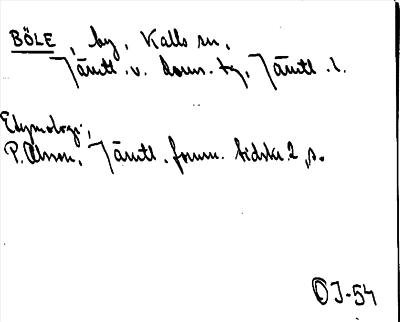 BÖLE, by, Kalls sn,
Jämtl. v. doms. tg, Jämtl. l.
Etymologi:
P. Olsson, Jämtl. fornm. tidskr. 2, s.
OJ-54